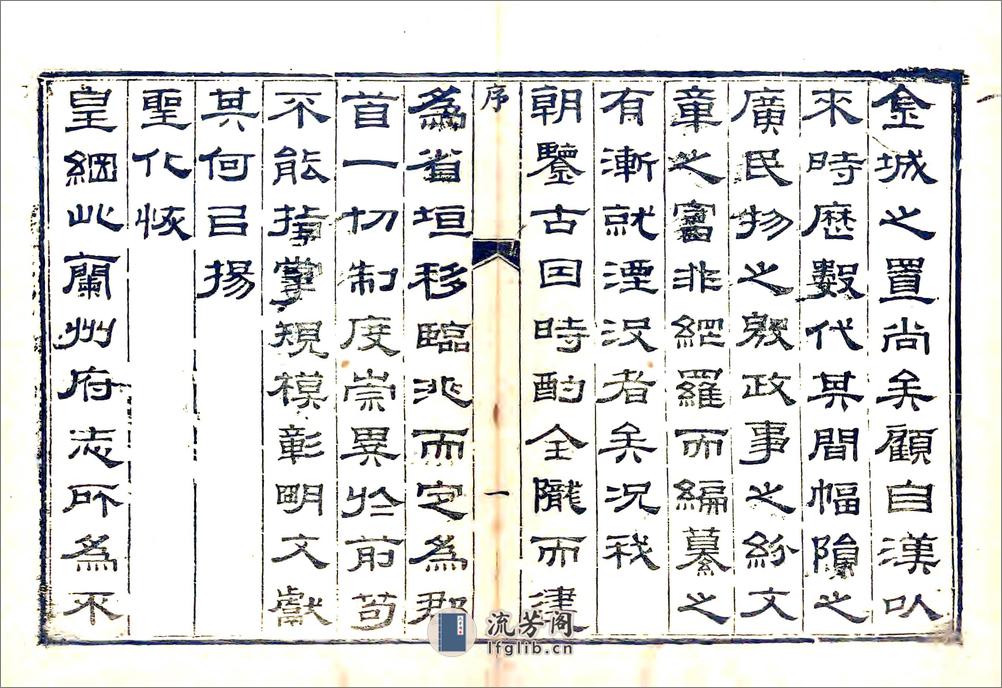 金城之置尚矣顧自漢以
來時歷數代其間幅隕之
廣民物之殷政事之紛文
章之富非網羅而編纂之
有漸就湮没者矣況我
朝鑒古因時酌全隴而建
序 一
為省垣移臨洮而定為郡
首一切制度崇異於前苟
不能指掌規模彰明文獻
其何㠯揚
聖化恢
皇綱此蘭州府志所為不
流芳阁
lfglib.cn